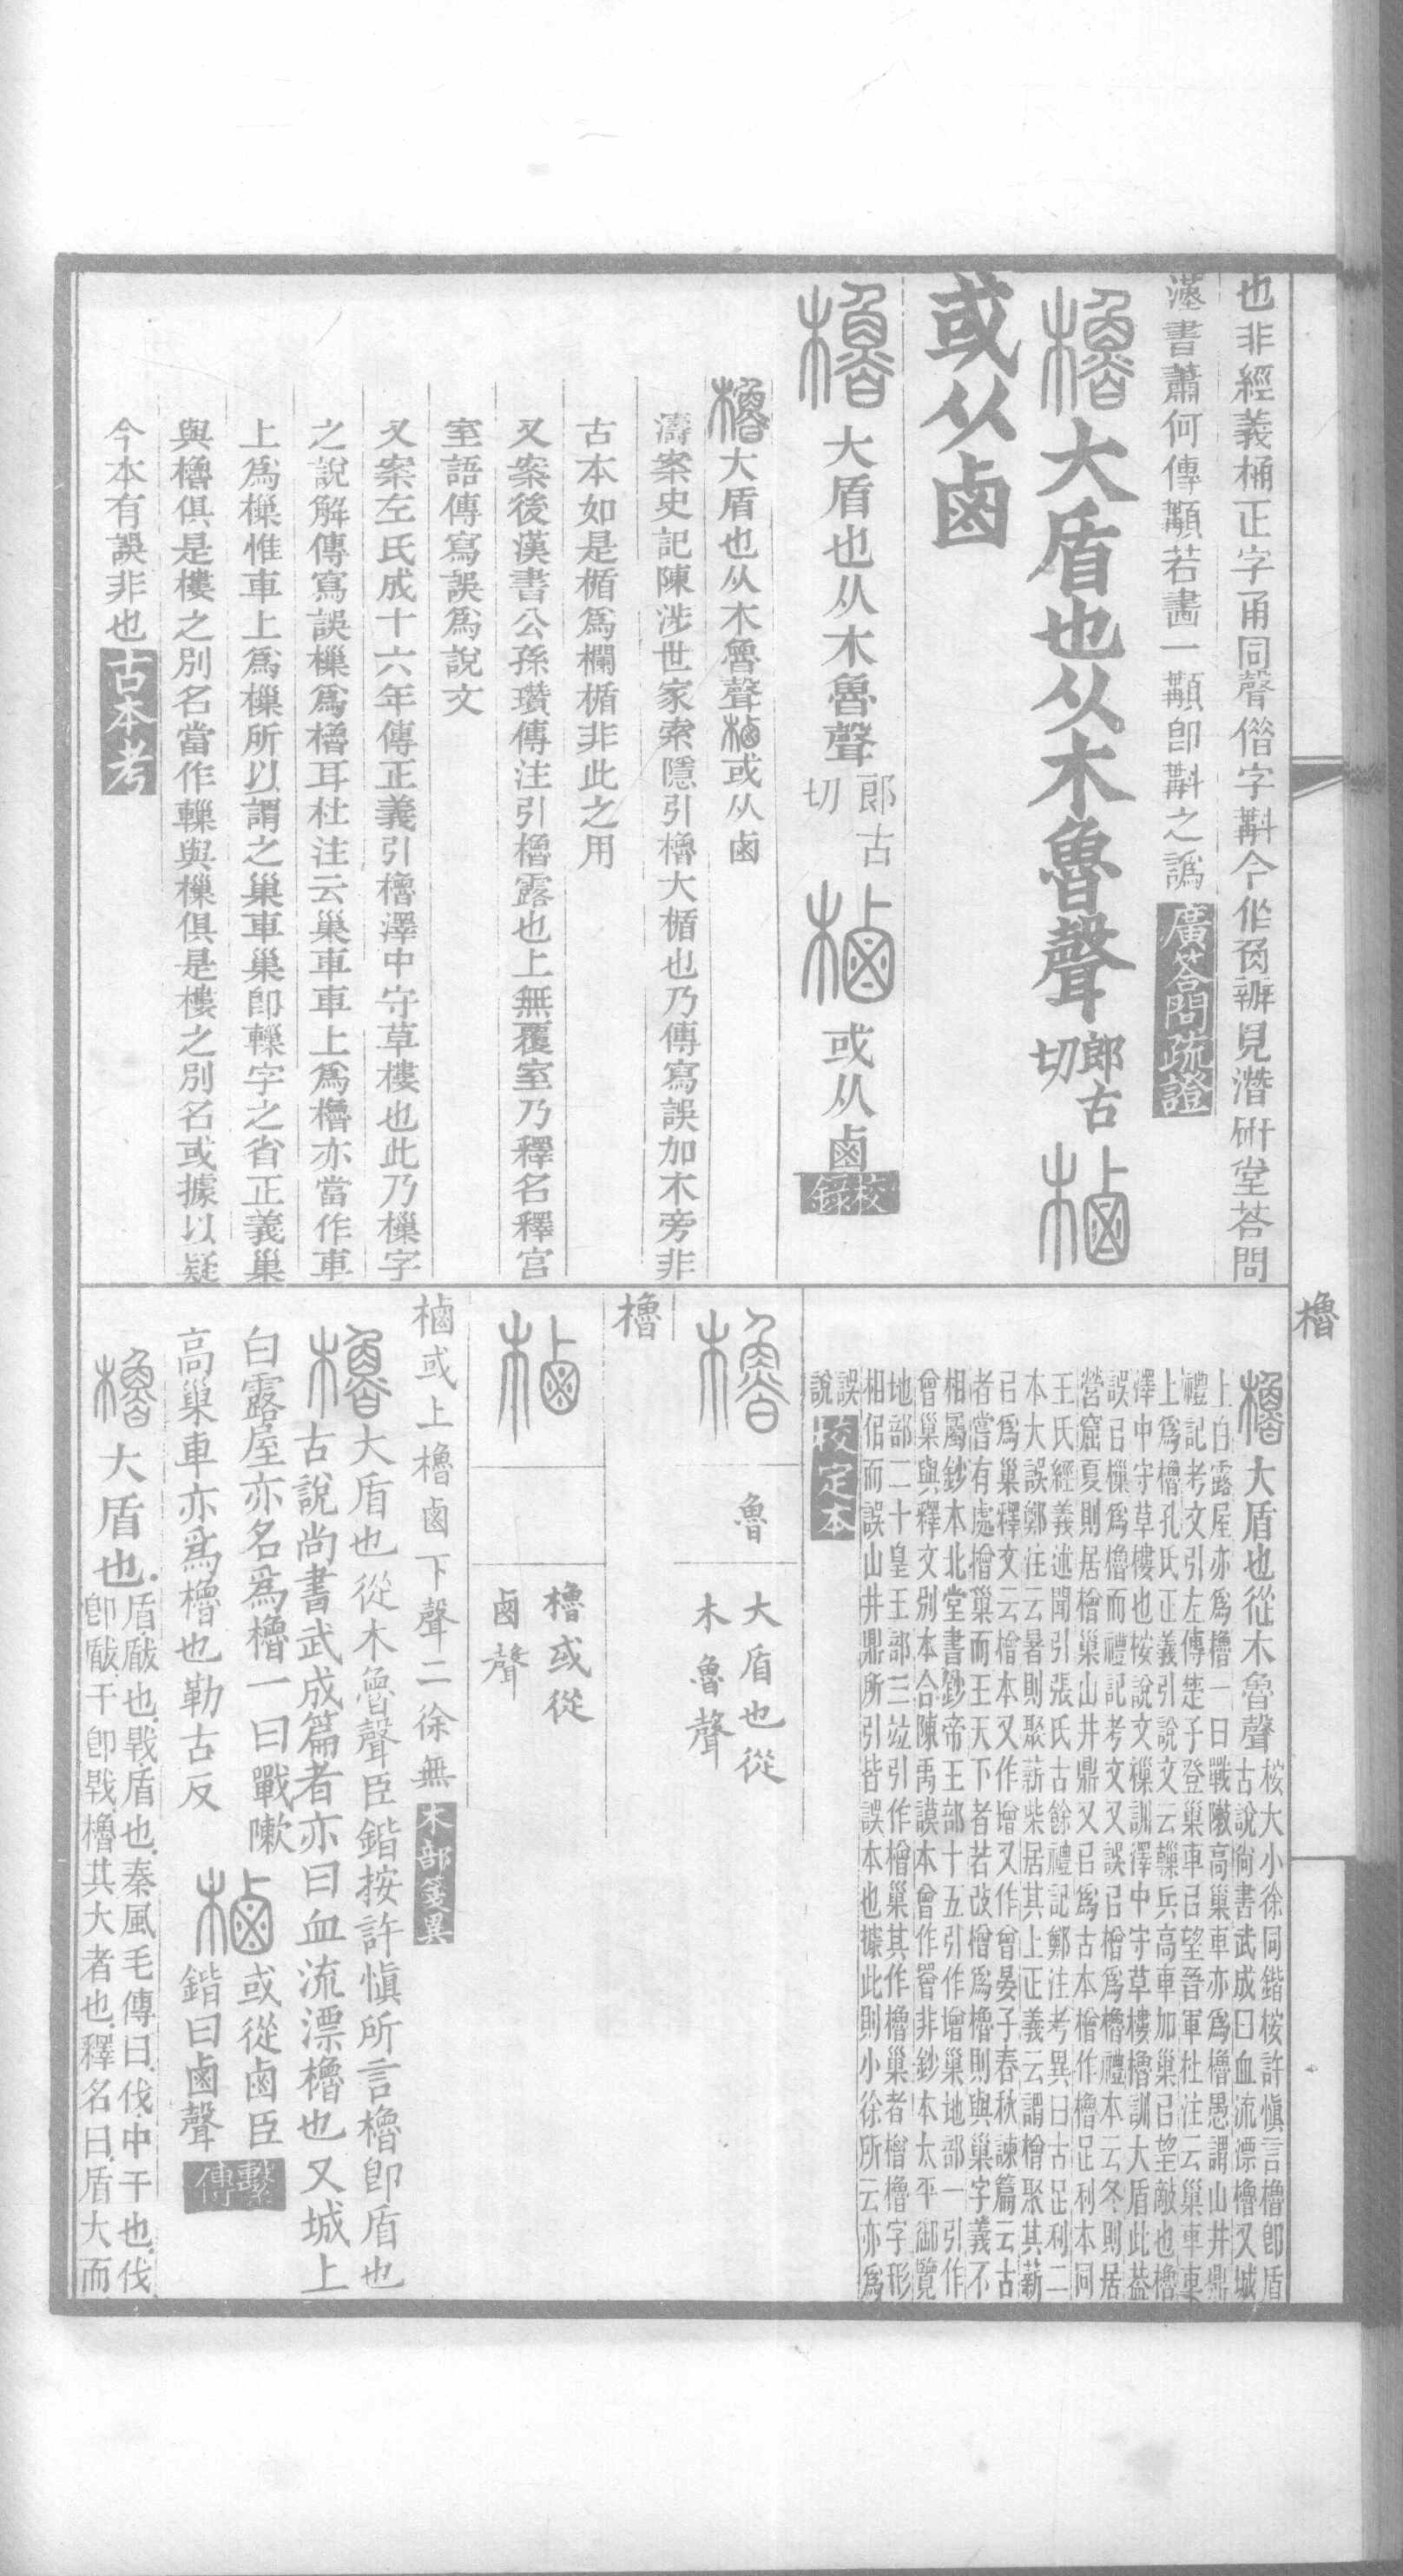 也非經義桶正字甬同聲偕字斠今作
見潛硏堂荅問
漢書蕭何傳顜若畫一顜卽斠之譌廣答問疏證
櫓大盾也从木魯聲郎古切樐
或从鹵
櫓大盾也从木魯聲郎古切樐或从鹵校錄
櫓大盾也从木魯聲樐或从鹵
濤案史記陳涉世家索隱引櫓大楯也乃傳寫誤加木旁非
古本如是楯爲欄楯非此之用
又案後漢書公孫瓚傳注引櫓露也上無覆室乃釋名釋宫
室語傳寫誤爲說文
又案左氏成十六年傳正義引櫓澤中守草樓也此乃樔字
之說解傳寫誤樔爲櫓耳杜注云巢車車上爲櫓亦當作車
上爲樔惟車上爲樔所以謂之巢車巢卽轈字之省正義巢
與櫓俱是樓之別名當作轈與樔俱是樓之別名或據以疑
今本有誤非也古本考
櫓
櫓大盾也從木魯聲桉大小徐同鍇桉許愼言櫓卽盾
古說尙書武成曰血流漂櫓又城
上白露屋亦爲櫓一曰戰隞高巢車亦爲櫓愚謂山井鼎
禮記考文引左傳楚子登巢車㠯望晉軍杜注云巢車車
上爲櫓孔氏正義引說文云轈兵高車加巢㠯望敵也櫓
澤中守草樓也桉說文樔訓澤中守草樓櫓訓大盾此葢
誤㠯樔爲櫓而禮記考文又誤㠯橧爲櫓禮本云冬則居
營窟夏則居橧巢山井鼎又㠯爲古本橧作櫓足利本同
王氏經義述聞引張氏古餘禮記鄭注考異曰古足利二
本大誤鄭注云暑則聚薪柴居其上正義云謂橧聚其薪
㠯爲巢釋文云橧本又作增又作曾晏子春秋諫篇云古
者嘗有處橧巢而王天下者若改橧爲櫓則與巢字義不
相屬鈔本北堂書鈔帝王部十五引作增巢地部一引作
曾巢與釋文別本合陳禹謨本曾作罾非鈔本太平御覽
地部二十皇王部三竝引作橧巢其作櫓巢者橧櫓字形
相侣而誤山井鼎所引皆誤本也據此則小徐所云亦爲
誤說校定本
櫓魯大盾也從木魯聲
櫓
樐櫓或從鹵聲
樐或上櫓鹵下聲二徐無木部箋異
櫓大盾也從木魯聲臣鍇按許愼所言櫓卽盾也
古說尚書武成篇者亦曰血流漂櫓也又城上
白露屋亦名爲櫓一曰戰隞
高巢車亦爲櫓也勒古反
樐或從鹵臣鍇曰鹵聲繫傳
櫓大盾也盾瞂也戰盾也秦風毛傳曰伐中干也伐
卽瞂干卽戰櫓其大者也釋名曰盾大而